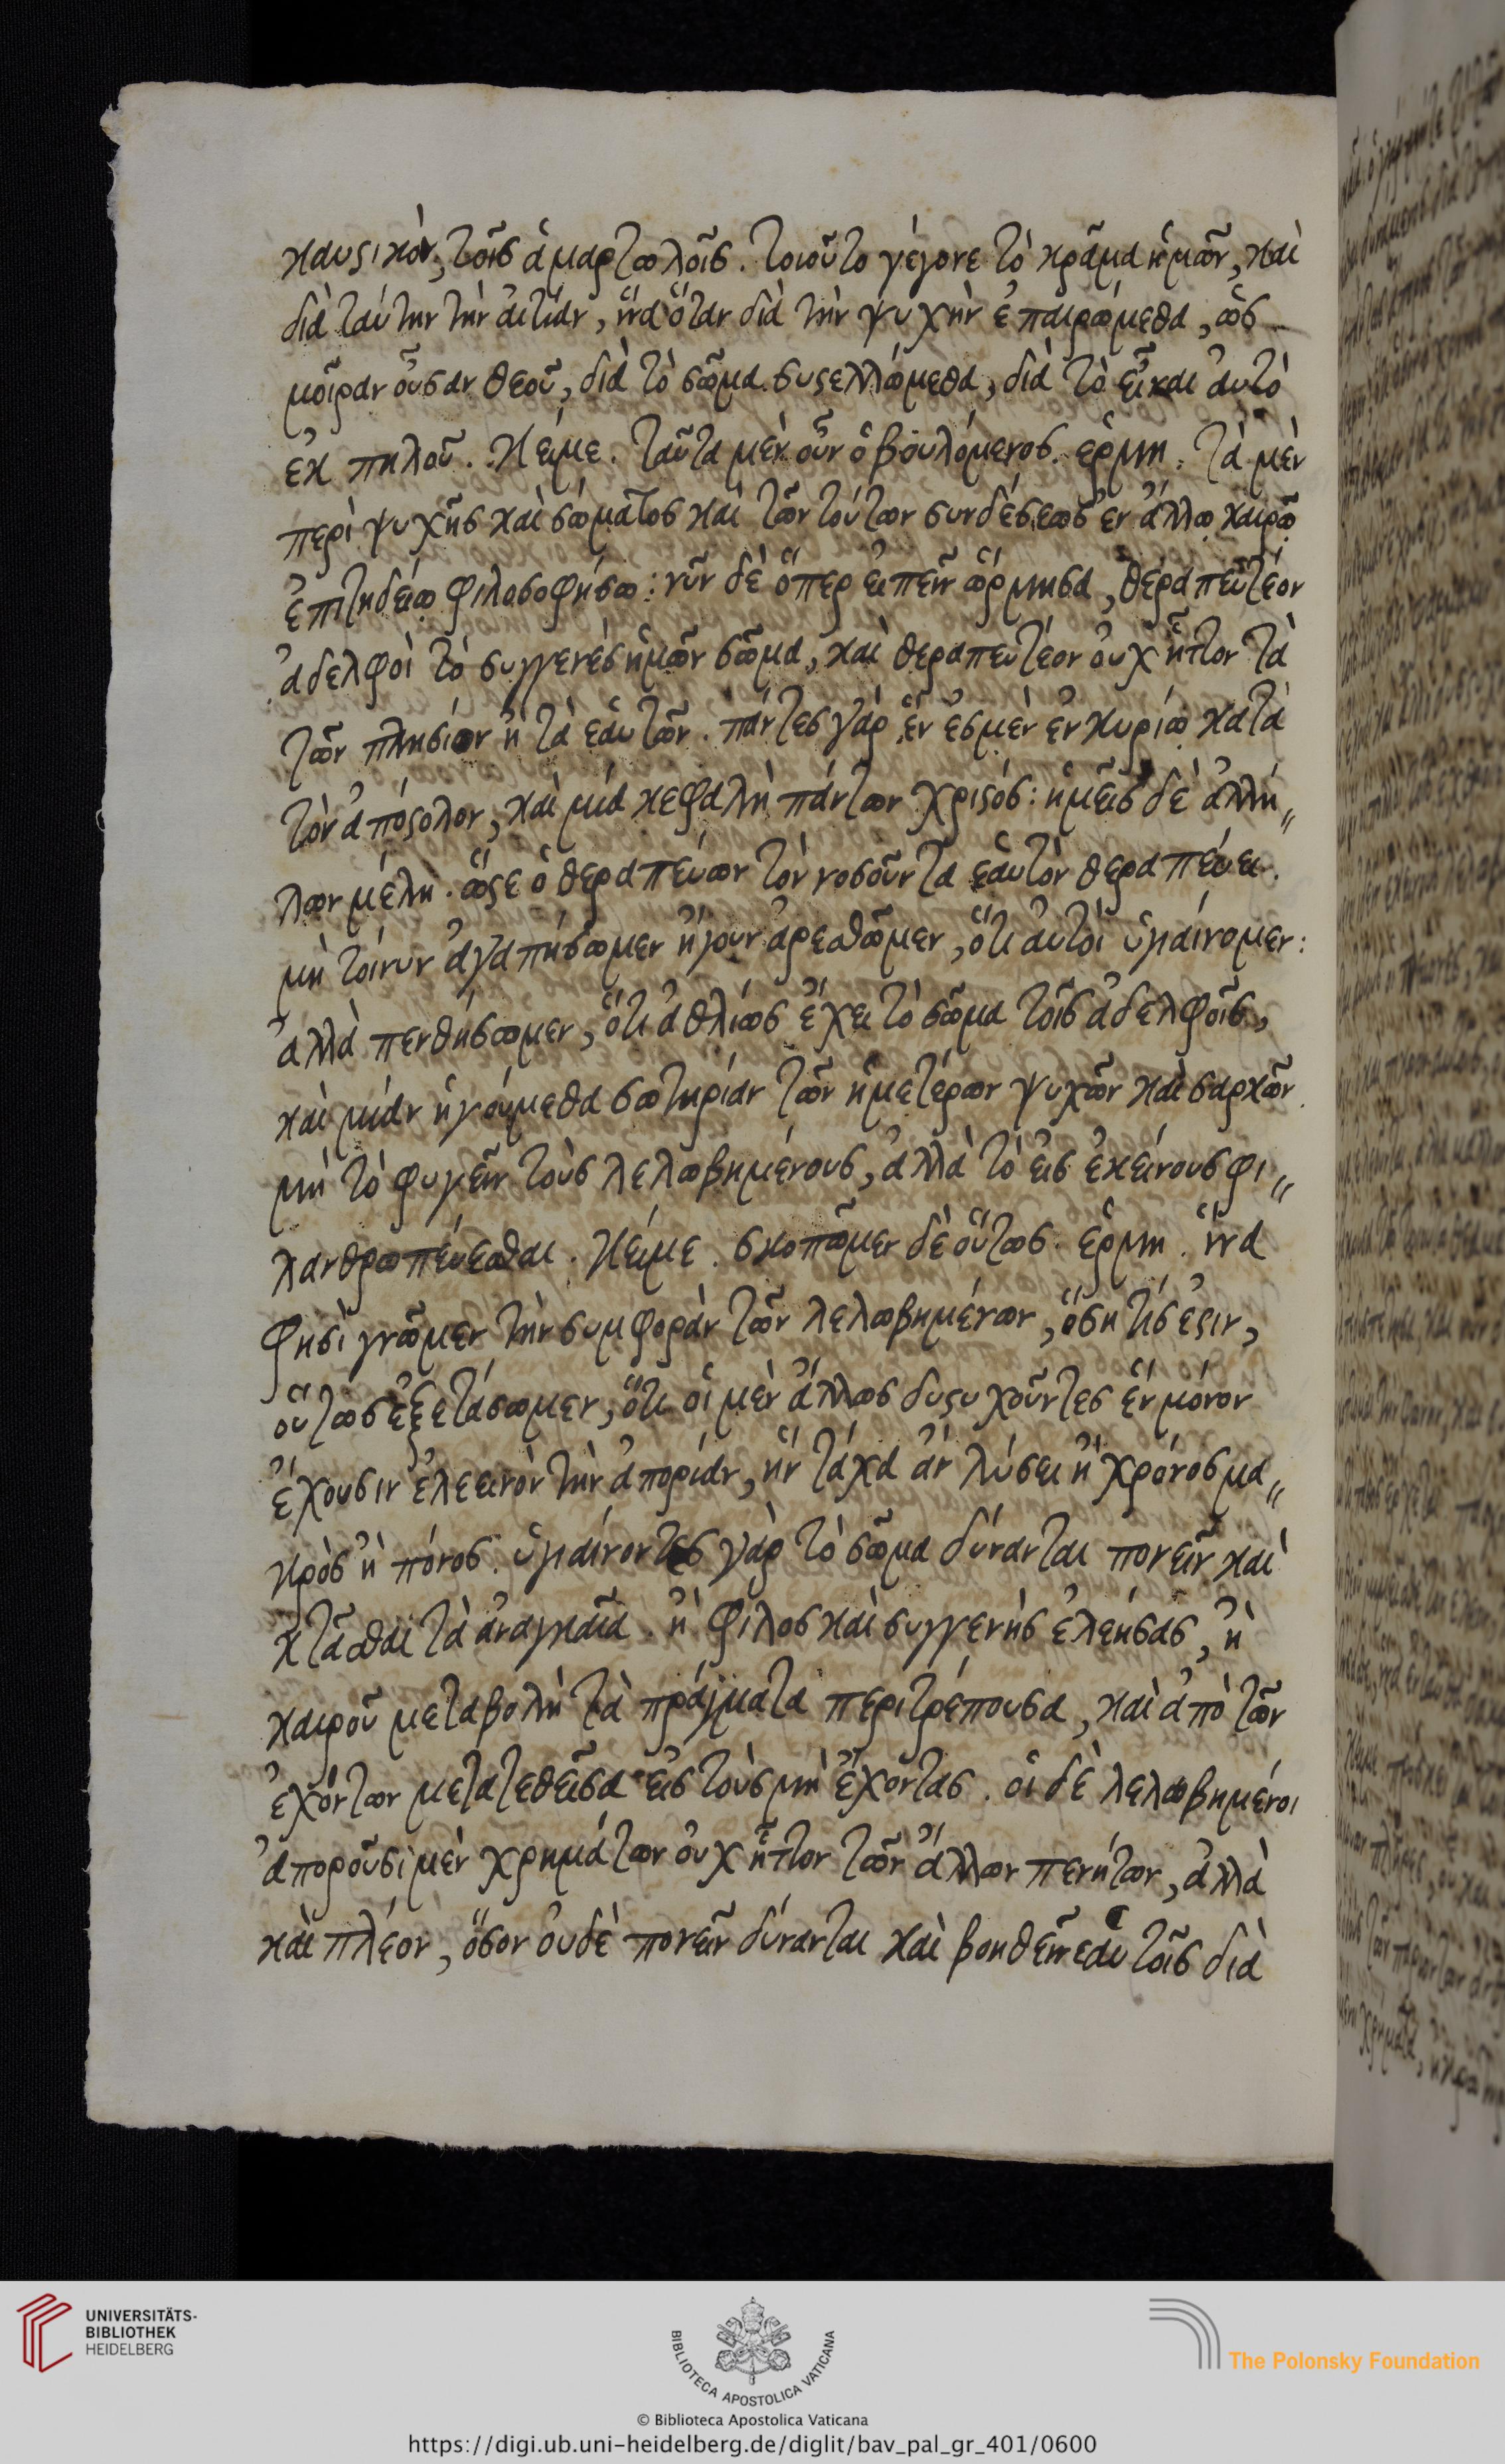 καυστικόν, τοῖς ἁμαρτωλοῖς. τοιοῦτο γέγονε τὸ κρᾶμα ἡμῶν, καὶ
διὰ ταύτην τὴν ἀιτίαν, ἵνα ὅταν διὰ τὴν ψυχὴν ἐπαιρώμεθα, ὡς
μοῖραν οὖσαν θεοῦ, διὰ τὸ σῶμα συστελλώμεθα, διὰ τὸ εἶναι ἀυτὸ
ἐκ πηλοῦ. Κείμε. ταῦτα μὲν οὖν ὁ βουλόμενος. ἑρμη. τὰ μὲν
περὶ ψυχῆς καὶ σώματος καὶ τῶν τούτων συνδέσεως ἐν ἄλλω καιρῶ
ἐπιτηδείω φιλοσοφήσω: νῦν δὲ ὅπερ ειπεῖν ὥρμησα, θεραπευτέον
ἀδελφοὶ τὸ συγγενὲς ἡμῶν σῶμα, καὶ θεραπευτέον ὀυχ ἧττον τὰ
τῶν πλησίον ἢ τὰ ἑαυτῶν. πάντες γὰρ ἕν ἐσμὲν ἐν κυρίω κατὰ
τὸν ἀπόστολον, καὶ μία κεφαλὴ πάντων χριστός: ἡμεῖς δὲ ἀλλή〃
λων μέλη. ὥστε ὁ θεραπεύων τὸν νοσοῦντα ἑαυτὸν θεραπεύει.
μὴ τοίνυν ἀγαπήσωμεν ἤγουν ἀρεσθῶμεν, ὅτι ἀυτοὶ ὑγιαίνομεν:
ἀλλὰ πενθήσωμεν, ὅτι ἀθλίως ἔχει τὸ σῶμα τοῖς ἀδελφοῖς,
καὶ μίαν ἡγούμεθα σωτηρίαν τῶν ἡμετέρων ψυχῶν καὶ σαρκῶν
μὴ τὸ φυγεῖν τοὺς λελωβημένους, ἀλλὰ τὸ εις ἐκείνους φι〃
λανθρωπέυεσθαι. Κείμε. σκοπῶμεν δὲ ὅυτως. ἑρμη. ἵνα
φησὶ γνῶμεν τὴν συμφορὰν τῶν λελωβημένων, ὅση τίς ἐστιν,
ὅυτως ἐξετάσωμεν, ὅτι ὁι μὲν ἄλλως δυστυχοῦντες ἓν μόνον
ἔχουσιν ἐλεεινὸν τὴν ἀπορίαν, ἣν τάχα ἂν λύσει ἢ χρόνος μα〃
κρὸς ἢ πόνος. ὑγιαίνοντες γὰρ τὸ σῶμα δύνανται πονεῖν καὶ
κτᾶσθαι τὰ ἀναγκαῖα. ἢ φίλος καὶ συγγενὴς ἐλεήσας, ἢ
καιροῦ μεταβολὴ τὰ πράγματα περιτρέπουσα, καὶ ἀπὸ τῶν
ἐχόντων μετατεθεῖσα εἰς τοὺς μὴ ἔχοντας. ὁι δὲ λελωβημένοι
ἀποροῦσι μὲν χρημάτων ὀυχ ἧττον τῶν ἄλλων πενήτων, ἀλλὰ
καὶ πλέον, ὅσον ὀυδὲ πονεῖν δύνανται καὶ βοηθεῖν ἑαυτοῖς διὰ
UNIVERSITÄTS-
BIBLIOTHEK
HEIDELBERG
BIBLIOTECA APOSTOLICA VATICANA
The Polonsky Foundation
© Biblioteca Apostolica Vaticana
https://digi.ub.uni-heidelberg.de/diglit/bav_pal_gr_401/0600